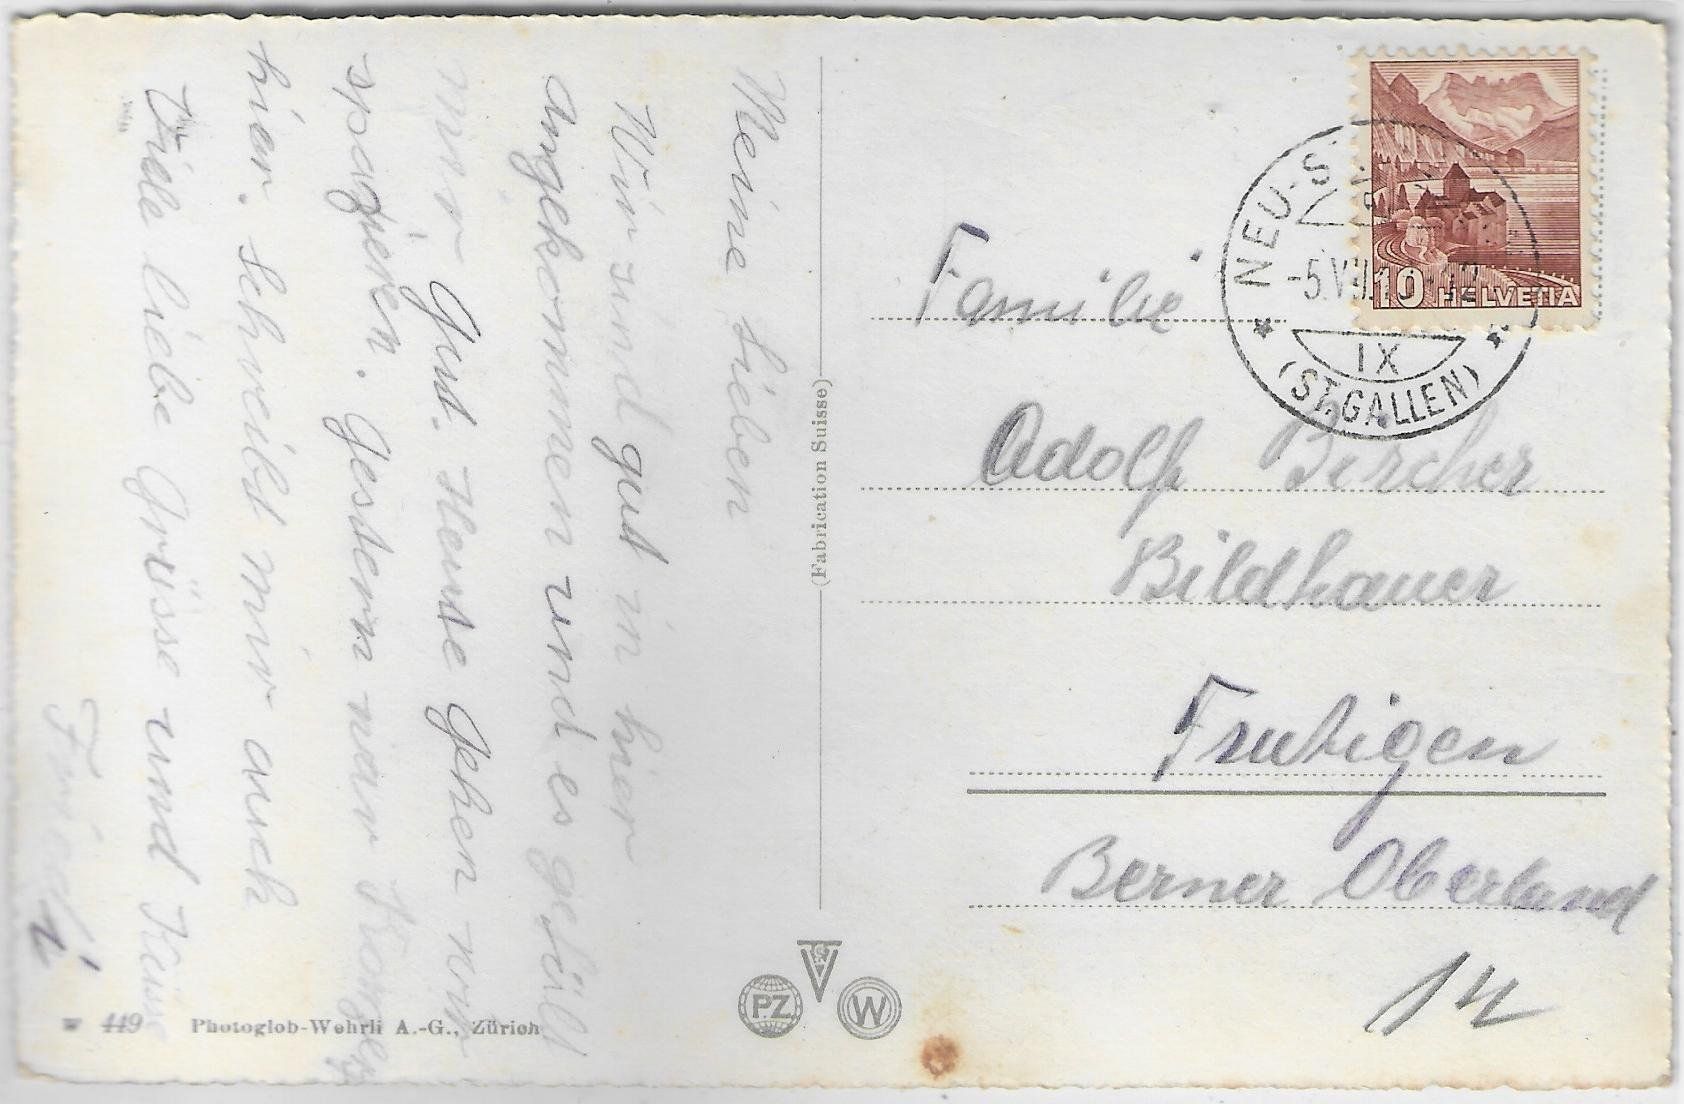 Meine Lieben
Wir sind gut in hier
angekommen und es gefällt
mir gut. Heute gehen wir
spazieren. Gestern war
hier. Schreibt mir auch
Viele liebe Grüsse und Küsse
Friedi
(Fabrication Suisse)
449 Photoglob-Wehrli A.-G., Zürich
P.Z.
W
10 HELVETIA
NEU-S
-5.VII.
IX
(ST. GALLEN)
Familie
Adolf Bircher
Bildhauer
Frutigen
Berner Oberland